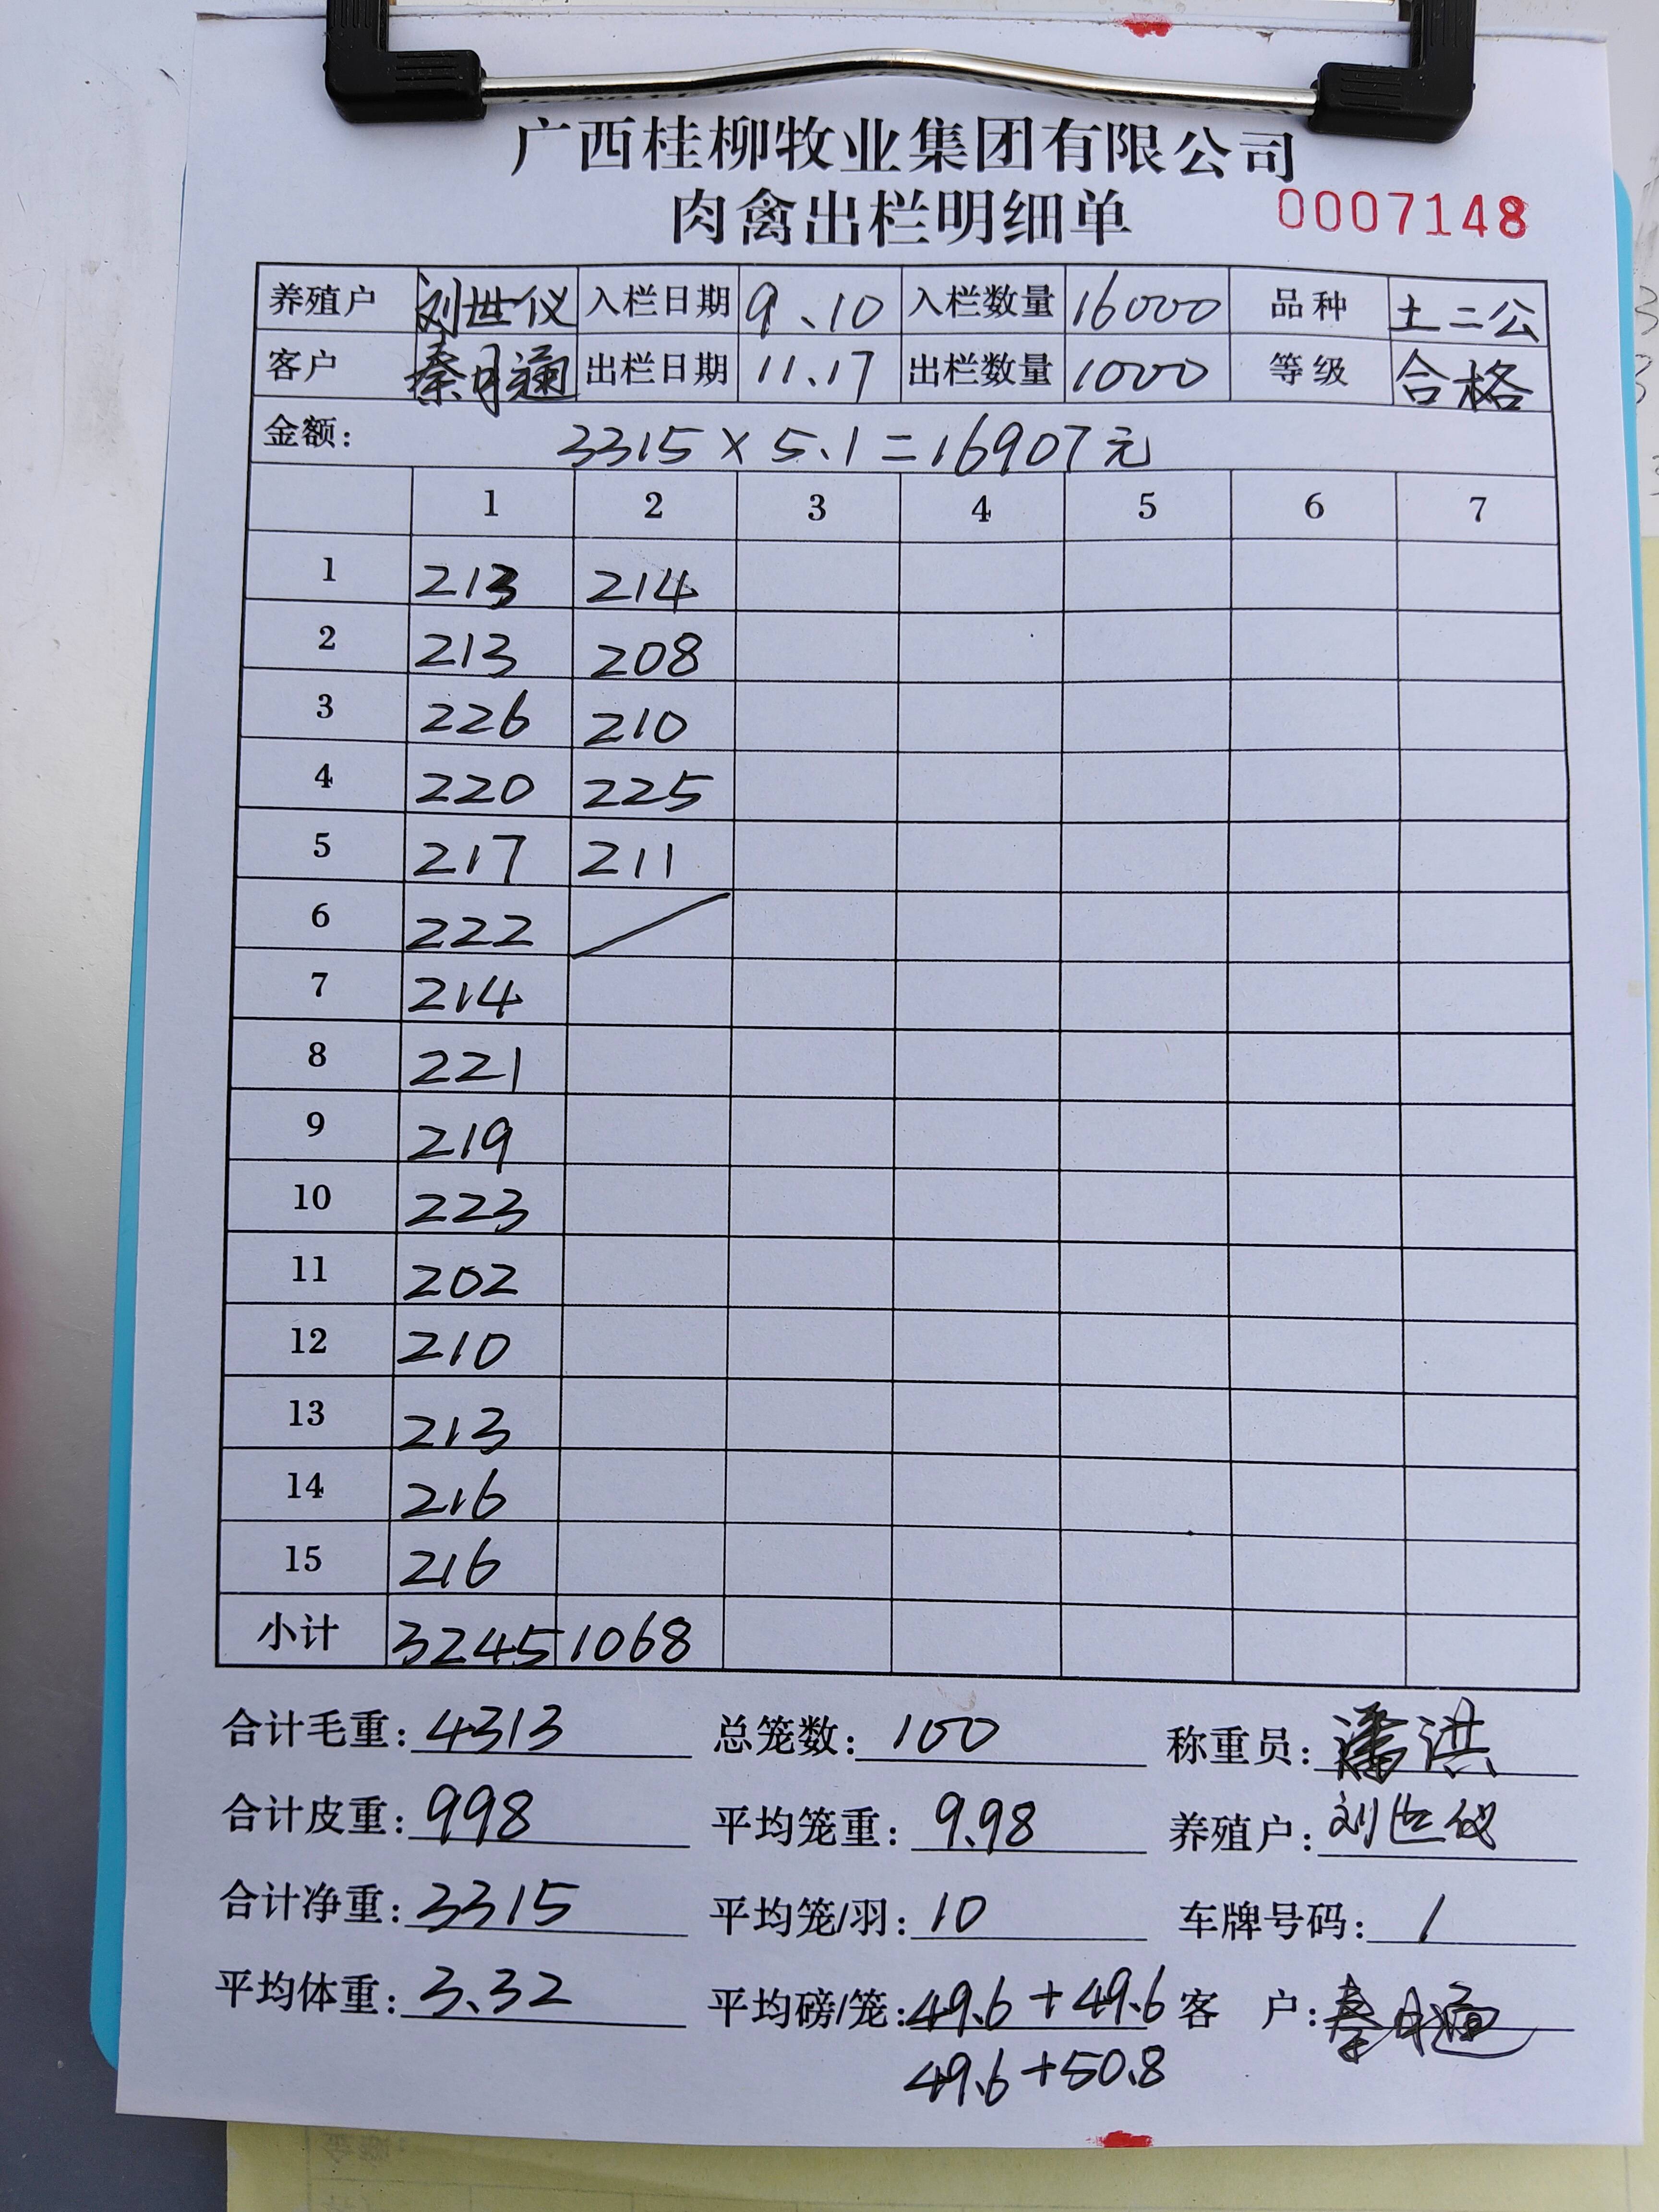 广西桂柳牧业集团有限公司
肉禽出栏明细单 0007148
养殖户 刘世仪 入栏日期 9、10 入栏数量 16000 品种 土二公
客户 秦月通 出栏日期 11.17 出栏数量 1000 等级 合格
金额: 3315×5.1=16907元
1 2 3 4 5 6 7
1 213 214
2 213 208
3 226 210
4 220 225
5 217 211
6 222
7 214
8 221
9 219
10 223
11 202
12 210
13 213
14 216
15 216
小计 3245 1068
合计毛重: 4313 总笼数: 100 称重员: 潘洪
合计皮重: 998 平均笼重: 9.98 养殖户: 刘世仪
合计净重: 3315 平均笼/羽: 10 车牌号码: /
平均体重: 3.32 平均磅/笼: 49.6+49.6 客 户: 秦月通
49.6+50.8